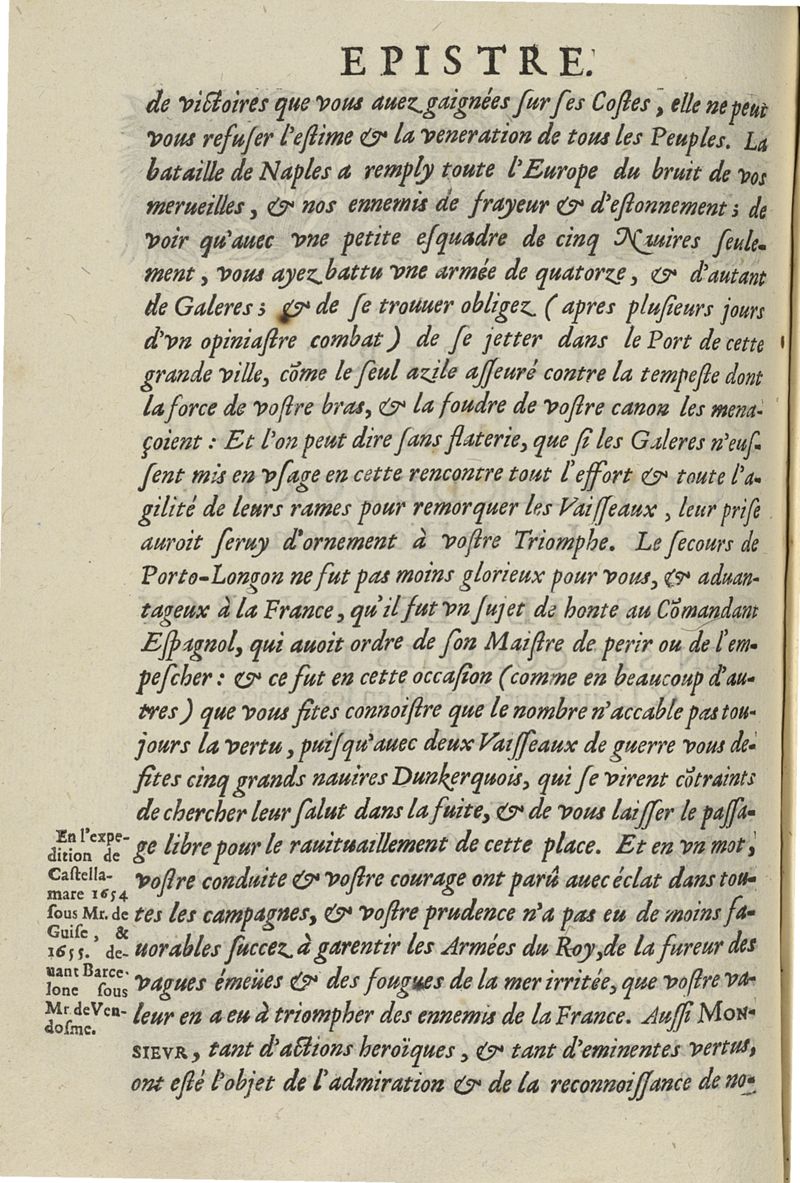 EPISTRE.
de victoires que vous auez gaignées ſur ſes Coſtes, elle ne peut
vous refuſer l'eſtime & la veneration de tous les Peuples. La
bataille de Naples a remply toute l'Europe du bruit de vos
merueilles, & nos ennemis de frayeur & d'eſtonnement; de
voir qu'auec vne petite eſquadre de cinq Nauires ſeule-
ment, vous ayez battu vne armée de quatorze, & d'autant
de Galeres; & de ſe trouuer obligez (apres pluſieurs jours
d'vn opiniaſtre combat) de ſe jetter dans le Port de cette
grande ville, cõme le ſeul azile aſſeuré contre la tempeſte dont
la force de voſtre bras, & la foudre de voſtre canon les mena-
çoient: Et l'on peut dire ſans flaterie, que ſi les Galeres n'euſ-
ſent mis en vſage en cette rencontre tout l'effort & toute l'a-
gilité de leurs rames pour remorquer les Vaiſſeaux, leur priſe
auroit ſeruy d'ornement à voſtre Triomphe. Le ſecours de
Porto-Longon ne fut pas moins glorieux pour vous, & aduan-
tageux à la France, qu'il fut vn ſujet de honte au Cõmandant
Eſpagnol, qui auoit ordre de ſon Maiſtre de perir ou de l'em-
peſcher: & ce fut en cette occaſion (comme en beaucoup d'au-
tres) que vous fites connoiſtre que le nombre n'accable pas tou-
jours la vertu, puiſqu'auec deux Vaiſſeaux de guerre vous de-
fites cinq grands nauires Dunkerquois, qui ſe virent cõtraints
de chercher leur ſalut dans la fuite, & de vous laiſſer le paſſa-
ge libre pour le rauituaillement de cette place. Et en vn mot,
voſtre conduite & voſtre courage ont parû auec éclat dans tou-
tes les campagnes, & voſtre prudence n'a pas eu de moins fa-
uorables ſuccez à garentir les Armées du Roy, de la fureur des
vagues émeües & des fougues de la mer irritée, que voſtre va-
leur en a eu à triompher des ennemis de la France. Auſſi MON-
SIEVR, tant d'actions heroïques, & tant d'eminentes vertus,
ont eſté l'objet de l'admiration & de la reconnoiſſance de no-
En l'expe-
dition de
Caſtella-
mare 1654
ſous Mr. de
Guiſe, &
1655. de-
uant Barce-
lone ſous
Mr de Ven-
doſme.